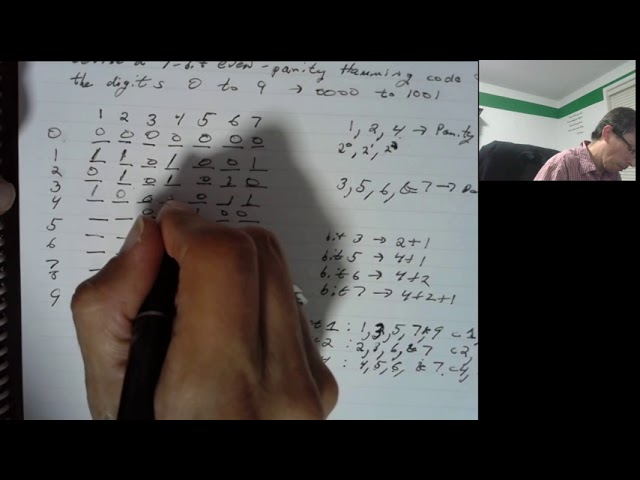 7-bit even-parity Hamming code
the digits 0 to 9 → 0000 to 1001
1 2 3 4 5 6 7
0 0 0 0 0 0 0 0
1 1 1 0 1 0 0 1
2 0 1 0 1 0 1 0
3 1 0 0 0 0 1 1
4 1 0 0
5
6
7
8
9
1, 2, 4 → Parity
2⁰, 2¹, 2²
3, 5, 6, & 7 →
bit 3 → 2+1
bit 5 → 4+1
bit 6 → 4+2
bit 7 → 4+2+1
1 : 1, 3, 5, 7 & 9 c1
c2 : 2, 3, 6, & 7 c2,
: 4, 5, 6, & 7 c4,